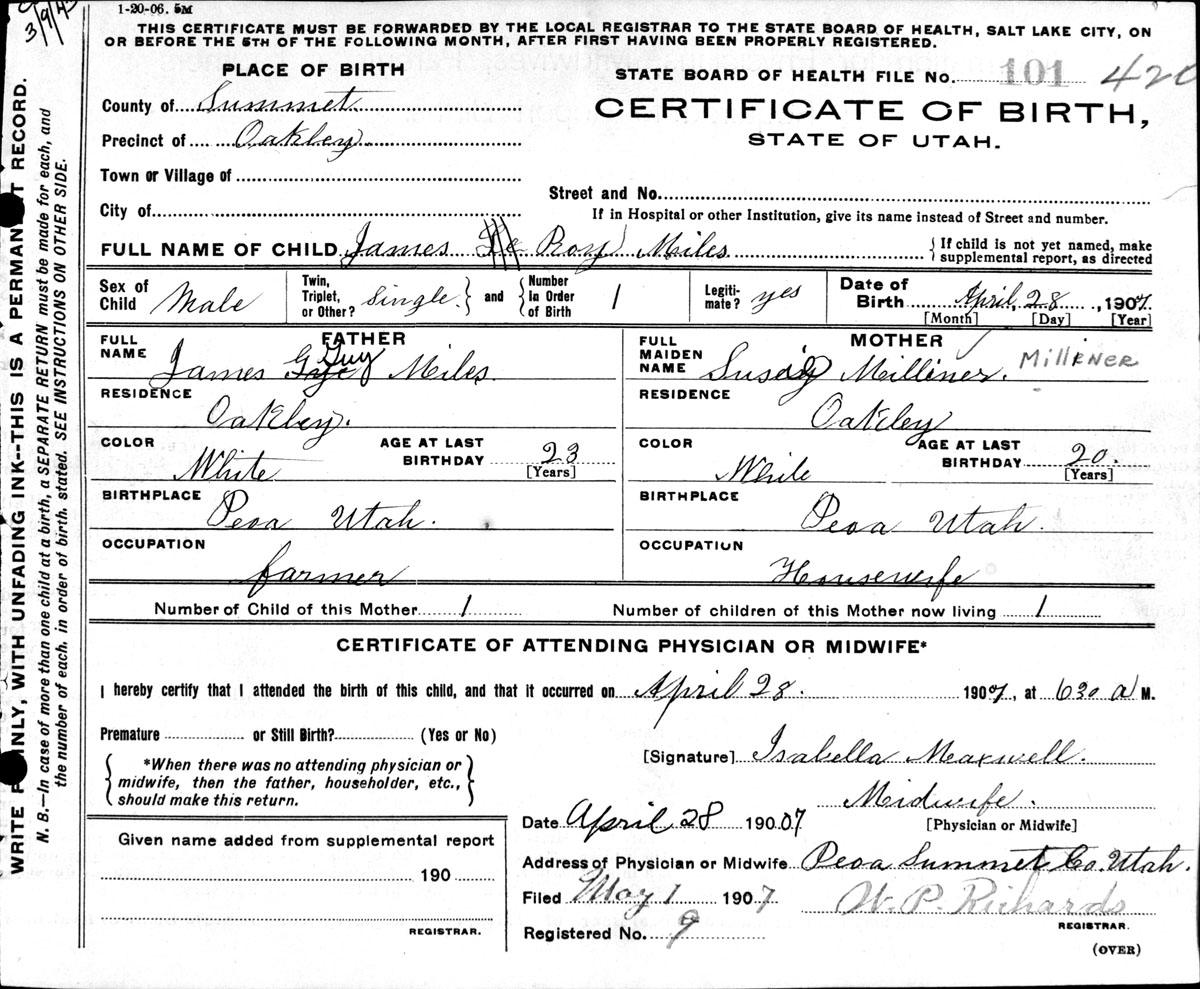 3/9/43
1-20-06. 5M
THIS CERTIFICATE MUST BE FORWARDED BY THE LOCAL REGISTRAR TO THE STATE BOARD OF HEALTH, SALT LAKE CITY, ON
OR BEFORE THE 5TH OF THE FOLLOWING MONTH, AFTER FIRST HAVING BEEN PROPERLY REGISTERED.
PLACE OF BIRTH
STATE BOARD OF HEALTH FILE No. 101 420
County of Summet
CERTIFICATE OF BIRTH,
Precinct of Oakley
STATE OF UTAH.
Town or Village of
Street and No.
City of
If in Hospital or other Institution, give its name instead of Street and number.
FULL NAME OF CHILD James Le Roy Miles { If child is not yet named, make
supplemental report, as directed
Sex of Child Male
Twin, Triplet, or Other? Single } and { Number in Order of Birth 1
Legiti- mate? yes
Date of Birth April, 28, 1907.
[Month] [Day] [Year]
FATHER
FULL NAME James Guy Miles.
RESIDENCE
Oakley.
COLOR White
AGE AT LAST BIRTHDAY 23
[Years]
BIRTHPLACE
Peoa Utah.
OCCUPATION
farmer
MOTHER
FULL MAIDEN NAME Susie Milliner. MillENER
RESIDENCE
Oakley
COLOR White
AGE AT LAST BIRTHDAY 20.
[Years]
BIRTHPLACE
Peoa Utah.
OCCUPATION
Housewife
Number of Child of this Mother 1 Number of children of this Mother now living 1
CERTIFICATE OF ATTENDING PHYSICIAN OR MIDWIFE*
I hereby certify that I attended the birth of this child, and that it occurred on April 28. 1907, at 630 a M.
Premature or Still Birth? (Yes or No)
[Signature] Isabella Maxwell.
{ *When there was no attending physician or
midwife, then the father, householder, etc.,
should make this return. }
Midwife.
Date April 28 190.07 [Physician or Midwife]
Given name added from supplemental report
190
REGISTRAR.
Address of Physician or Midwife Peoa Summet Co. Utah.
Filed May 1 1907 W. P. Richards
REGISTRAR.
Registered No. 9
(OVER)
WRITE PLAINLY, WITH UNFADING INK--THIS IS A PERMANENT RECORD.
N. B.—In case of more than one child at a birth, a SEPARATE RETURN must be made for each, and
the number of each, in order of birth, stated. SEE INSTRUCTIONS ON OTHER SIDE.